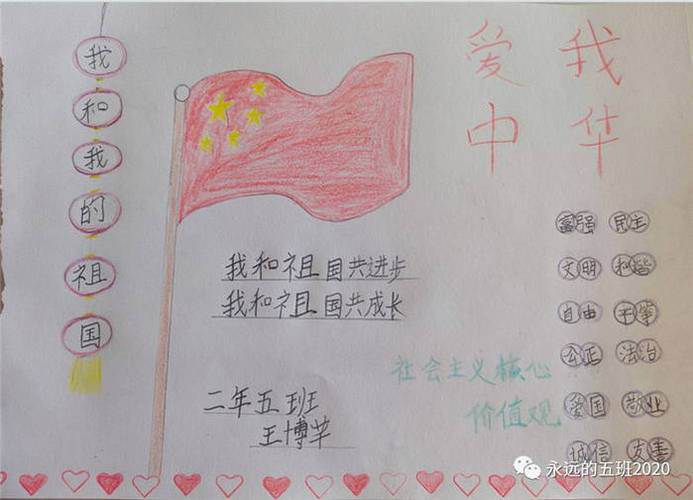 我和我的祖国
爱我
中华
我和祖国共进步
我和祖国共成长
二年五班
王博
富强 民主
文明 和谐
自由 平等
公正 法治
爱国 敬业
诚信 友善
社会主义核心
价值观
永远的五班2020